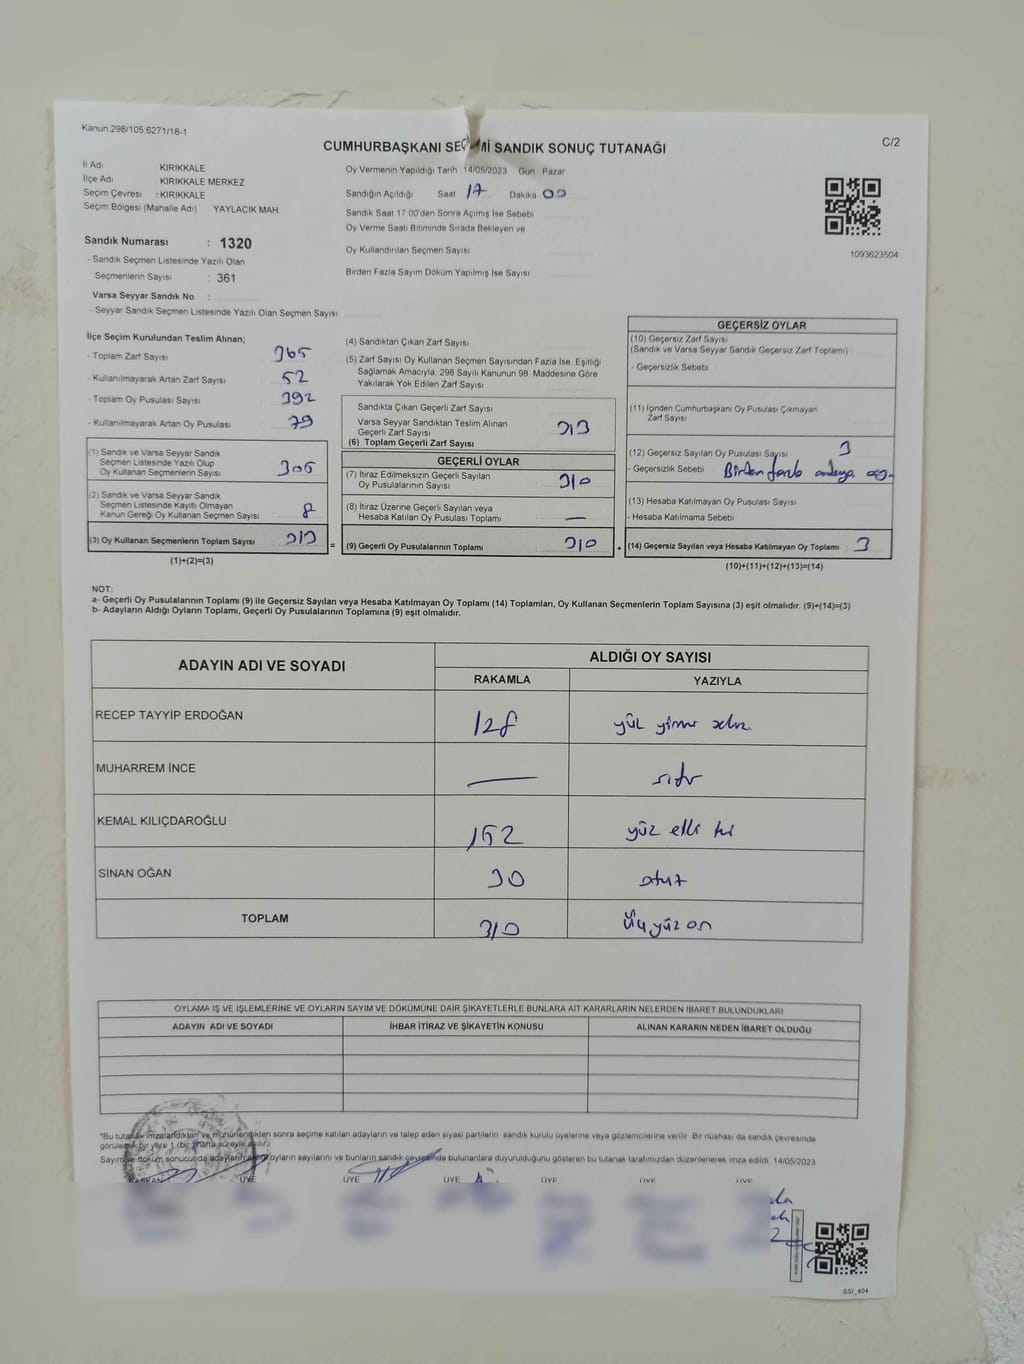 Kanun:298/105,6271/18-1
C/2
CUMHURBAŞKANI SEÇİMİ SANDIK SONUÇ TUTANAĞI
İl Adı KIRIKKALE
İlçe Adı KIRIKKALE MERKEZ
Seçim Çevresi : KIRIKKALE
Seçim Bölgesi (Mahalle Adı) YAYLACIK MAH
Sandık Numarası : 1320
- Sandık Seçmen Listesinde Yazılı Olan
Seçmenlerin Sayısı : 361
Varsa Seyyar Sandık No :
- Seyyar Sandık Seçmen Listesinde Yazılı Olan Seçmen Sayısı
Oy Vermenin Yapıldığı Tarih 14/05/2023 Gün Pazar
Sandığın Açıldığı Saat 17 Dakika 00
Sandık Saat 17 00'den Sonra Açımış İse Sebebi
Oy Verme Saati Bitiminde Sırada Bekleyen ve
Oy Kullandırılan Seçmen Sayısı
Birden Fazla Sayım Döküm Yapılmış İse Sayısı
1093623504
İlçe Seçim Kurulundan Teslim Alınan;
- Toplam Zarf Sayısı 365
- Kullanılmayarak Artan Zarf Sayısı 52
- Toplam Oy Pusulası Sayısı 392
- Kullanılmayarak Artan Oy Pusulası 79
(1) Sandık ve Varsa Seyyar Sandık
Seçmen Listesinde Yazılı Olup
Oy Kullanan Seçmenlerin Sayısı 305
(2) Sandık ve Varsa Seyyar Sandık
Seçmen Listesinde Kayıtlı Olmayan
Kanun Gereği Oy Kullanan Seçmen Sayısı 8
(3) Oy Kullanan Seçmenlerin Toplam Sayısı 313 =
(1)+(2)=(3)
(4) Sandıktan Çıkan Zarf Sayısı
(5) Zarf Sayısı Oy Kullanan Seçmen Sayısından Fazla İse, Eşitliği
Sağlamak Amacıyla, 298 Sayılı Kanunun 98. Maddesine Göre
Yakılarak Yok Edilen Zarf Sayısı
Sandıkta Çıkan Geçerli Zarf Sayısı
Varsa Seyyar Sandıktan Teslim Alınan
Geçerli Zarf Sayısı
(6) Toplam Geçerli Zarf Sayısı 313
GEÇERLİ OYLAR
(7) İtiraz Edilmeksizin Geçerli Sayılan
Oy Pusulalarının Sayısı 310
(8) İtiraz Üzerine Geçerli Sayılan veya
Hesaba Katılan Oy Pusulası Toplamı —
(9) Geçerli Oy Pusulalarının Toplamı 310 +
GEÇERSİZ OYLAR
(10) Geçersiz Zarf Sayısı
(Sandık ve Varsa Seyyar Sandık Geçersiz Zarf Toplamı)
- Geçersizlik Sebebi
(11) İçinden Cumhurbaşkanı Oy Pusulası Çıkmayan
Zarf Sayısı
(12) Geçersiz Sayılan Oy Pusulası Sayısı 3
- Geçersizlik Sebebi Birden fazla adaya oy.
(13) Hesaba Katılmayan Oy Pusulası Sayısı
- Hesaba Katılmama Sebebi
(14) Geçersiz Sayılan veya Hesaba Katılmayan Oy Toplamı 3
(10)+(11)+(12)+(13)=(14)
NOT:
a- Geçerli Oy Pusulalarının Toplamı (9) ile Geçersiz Sayılan veya Hesaba Katılmayan Oy Toplamı (14) Toplamları, Oy Kullanan Seçmenlerin Toplam Sayısına (3) eşit olmalıdır. (9)+(14)=(3)
b- Adayların Aldığı Oyların Toplamı, Geçerli Oy Pusulalarının Toplamına (9) eşit olmalıdır.
ADAYIN ADI VE SOYADI
ALDIĞI OY SAYISI
RAKAMLA YAZIYLA
RECEP TAYYİP ERDOĞAN 128 yüz yirmi sekiz
MUHARREM İNCE — sıfır
KEMAL KILIÇDAROĞLU 152 yüz elli iki
SİNAN OĞAN 30 otuz
TOPLAM 310 Üçyüz on
OYLAMA İŞ VE İŞLEMLERİNE VE OYLARIN SAYIM VE DÖKÜMÜNE DAİR ŞİKAYETLERLE BUNLARA AİT KARARLARIN NELERDEN İBARET BULUNDUKLARI
ADAYIN ADI VE SOYADI İHBAR İTİRAZ VE ŞİKAYETİN KONUSU ALINAN KARARIN NEDEN İBARET OLDUĞU
*Bu tutanak imzalandıktan ve mühürlendikten sonra seçime katılan adayların ve talep eden siyasi partilerin sandık kurulu üyelerine veya gözlemcilerine verilir. Bir nüshası da sandık çevresinde
görülecek bir yere 1 (bir) hafta süreyle asılır.
Sayım ve döküm sonucunda adayların aldığı oyların sayılarını ve bunların sandık çevresinde bulunanlara duyurulduğunu gösteren bu tutanak tarafımızdan düzenlenerek imza edildi. 14/05/2023
BAŞKAN ÜYE ÜYE ÜYE ÜYE ÜYE ÜYE
SSI_404